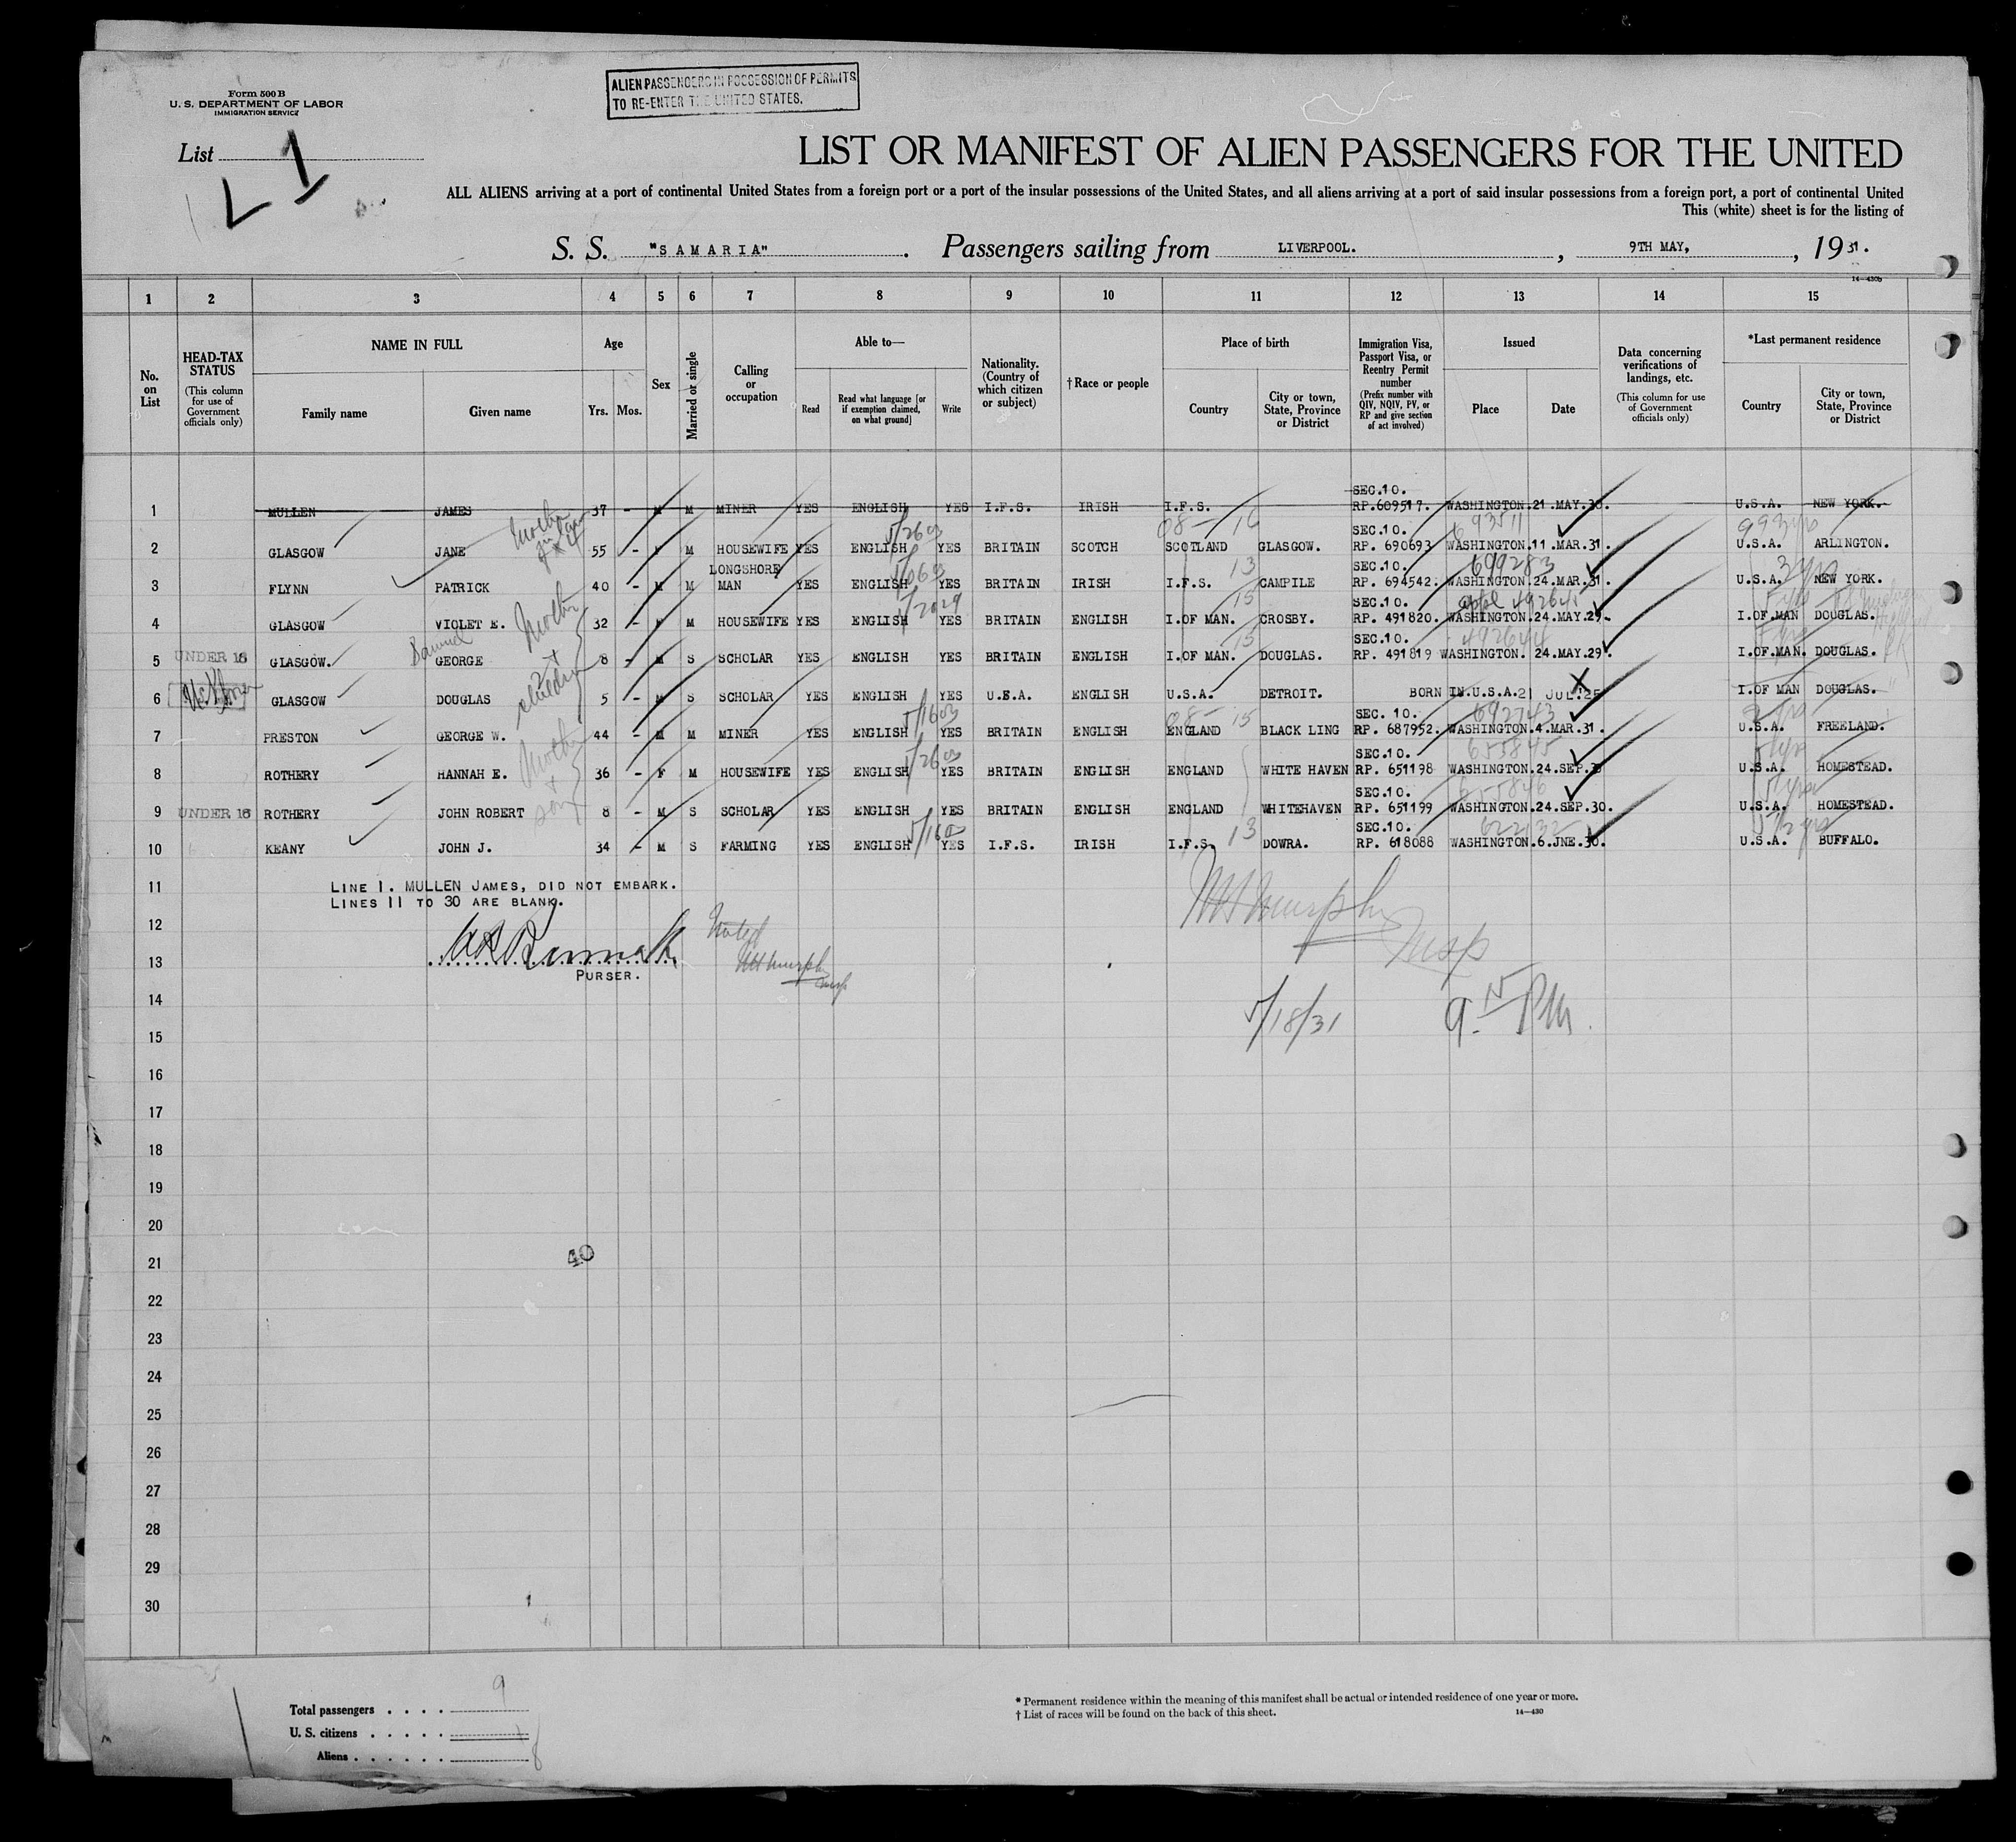 Form 500 B
U. S. DEPARTMENT OF LABOR
IMMIGRATION SERVICE
ALIEN PASSENGERS IN POSSESSION OF PERMITS
TO RE-ENTER THE UNITED STATES.
List 1
LIST OR MANIFEST OF ALIEN PASSENGERS FOR THE UNITED
ALL ALIENS arriving at a port of continental United States from a foreign port or a port of the insular possessions of the United States, and all aliens arriving at a port of said insular possessions from a foreign port, a port of continental United
This (white) sheet is for the listing of
S. S. "SAMARIA". Passengers sailing from LIVERPOOL., 9TH MAY, , 1931.
14—430b
1 2 3 4 5 6 7 8 9 10 11 12 13 14 15
No. on List
HEAD-TAX STATUS (This column for use of Government officials only)
NAME IN FULL
Family name
Given name
Age
Yrs. Mos.
Sex
Married or single
Calling or occupation
Able to—
Read
Read what language [or if exemption claimed, on what ground]
Write
Nationality. (Country of which citizen or subject)
† Race or people
Place of birth
Country
City or town, State, Province or District
Immigration Visa, Passport Visa, or Reentry Permit number (Prefix number with QIV, NQIV, PV, or RP and give section of act involved)
Issued
Place
Date
Data concerning verifications of landings, etc. (This column for use of Government officials only)
*Last permanent residence
Country
City or town, State, Province or District
1 MULLEN JAMES 37 - M M MINER YES ENGLISH YES I.F.S. IRISH I.F.S. SEC.10. RP.609517. WASHINGTON.21.MAY.30. U.S.A. NEW YORK.
2 GLASGOW JANE 55 - F M HOUSEWIFE YES ENGLISH YES BRITAIN SCOTCH SCOTLAND GLASGOW. SEC.10. RP. 690693 WASHINGTON.11.MAR.31. U.S.A. ARLINGTON.
3 FLYNN PATRICK 40 - M M LONGSHORE MAN YES ENGLISH YES BRITAIN IRISH I.F.S. CAMPILE SEC.10. RP. 694542. WASHINGTON.24.MAR.31. 699283 U.S.A. 3 yrs NEW YORK.
4 GLASGOW VIOLET E. Mother 32 - F M HOUSEWIFE YES ENGLISH YES BRITAIN ENGLISH I.OF MAN. CROSBY. SEC.10. RP. 491820. WASHINGTON.24.MAY.29. I.OF.MAN DOUGLAS.
5 UNDER 16 GLASGOW. Samuel GEORGE + 2 children 8 - M S SCHOLAR YES ENGLISH YES BRITAIN ENGLISH I.OF MAN. DOUGLAS. SEC.10. RP. 491819 WASHINGTON. 24.MAY.29. 492644 I.OF.MAN. DOUGLAS.
6 GLASGOW DOUGLAS 5 - M S SCHOLAR YES ENGLISH YES U.S.A. ENGLISH U.S.A. DETROIT. BORN IN U.S.A. 21 JUL.25 I.OF MAN DOUGLAS.
7 PRESTON GEORGE W. 44 - M M MINER YES ENGLISH YES BRITAIN ENGLISH ENGLAND BLACK LING SEC. 10. RP. 687952. WASHINGTON.4.MAR.31. 692743 U.S.A. FREELAND.
8 ROTHERY HANNAH E. Mother + son 36 - F M HOUSEWIFE YES ENGLISH YES BRITAIN ENGLISH ENGLAND WHITE HAVEN SEC.10. RP. 651198 WASHINGTON.24.SEP.30 655845 U.S.A. HOMESTEAD.
9 UNDER 16 ROTHERY JOHN ROBERT 8 - M S SCHOLAR YES ENGLISH YES BRITAIN ENGLISH ENGLAND WHITEHAVEN SEC.10. RP. 651199 WASHINGTON.24.SEP.30. 655846 U.S.A. HOMESTEAD.
10 KEANY JOHN J. 34 - M S FARMING YES ENGLISH YES I.F.S. IRISH I.F.S. 13 DOWRA. SEC.10. RP. 618088 WASHINGTON.6.JNE.30. 622132 U.S.A. BUFFALO.
11 LINE 1. MULLEN JAMES, DID NOT EMBARK.
LINES 11 TO 30 ARE BLANK.
12 Noted WH Murphy Insp
13 PURSER. WH Murphy Insp
14 5/18/31 9 15 PM
15
16
17
18
19
20
21 40
22
23
24
25
26
27
28
29
30
Total passengers . . . . 9
U. S. citizens . . . . . 1
Aliens . . . . . . 8
* Permanent residence within the meaning of this manifest shall be actual or intended residence of one year or more.
† List of races will be found on the back of this sheet.
14—430